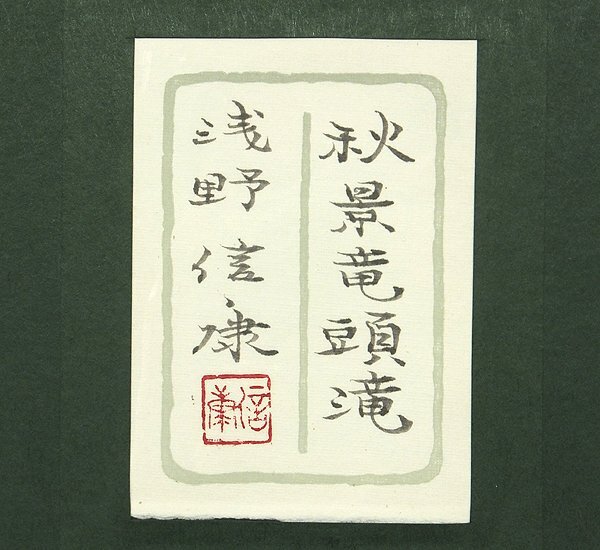 秋景竜頭滝
浅野信康
信康